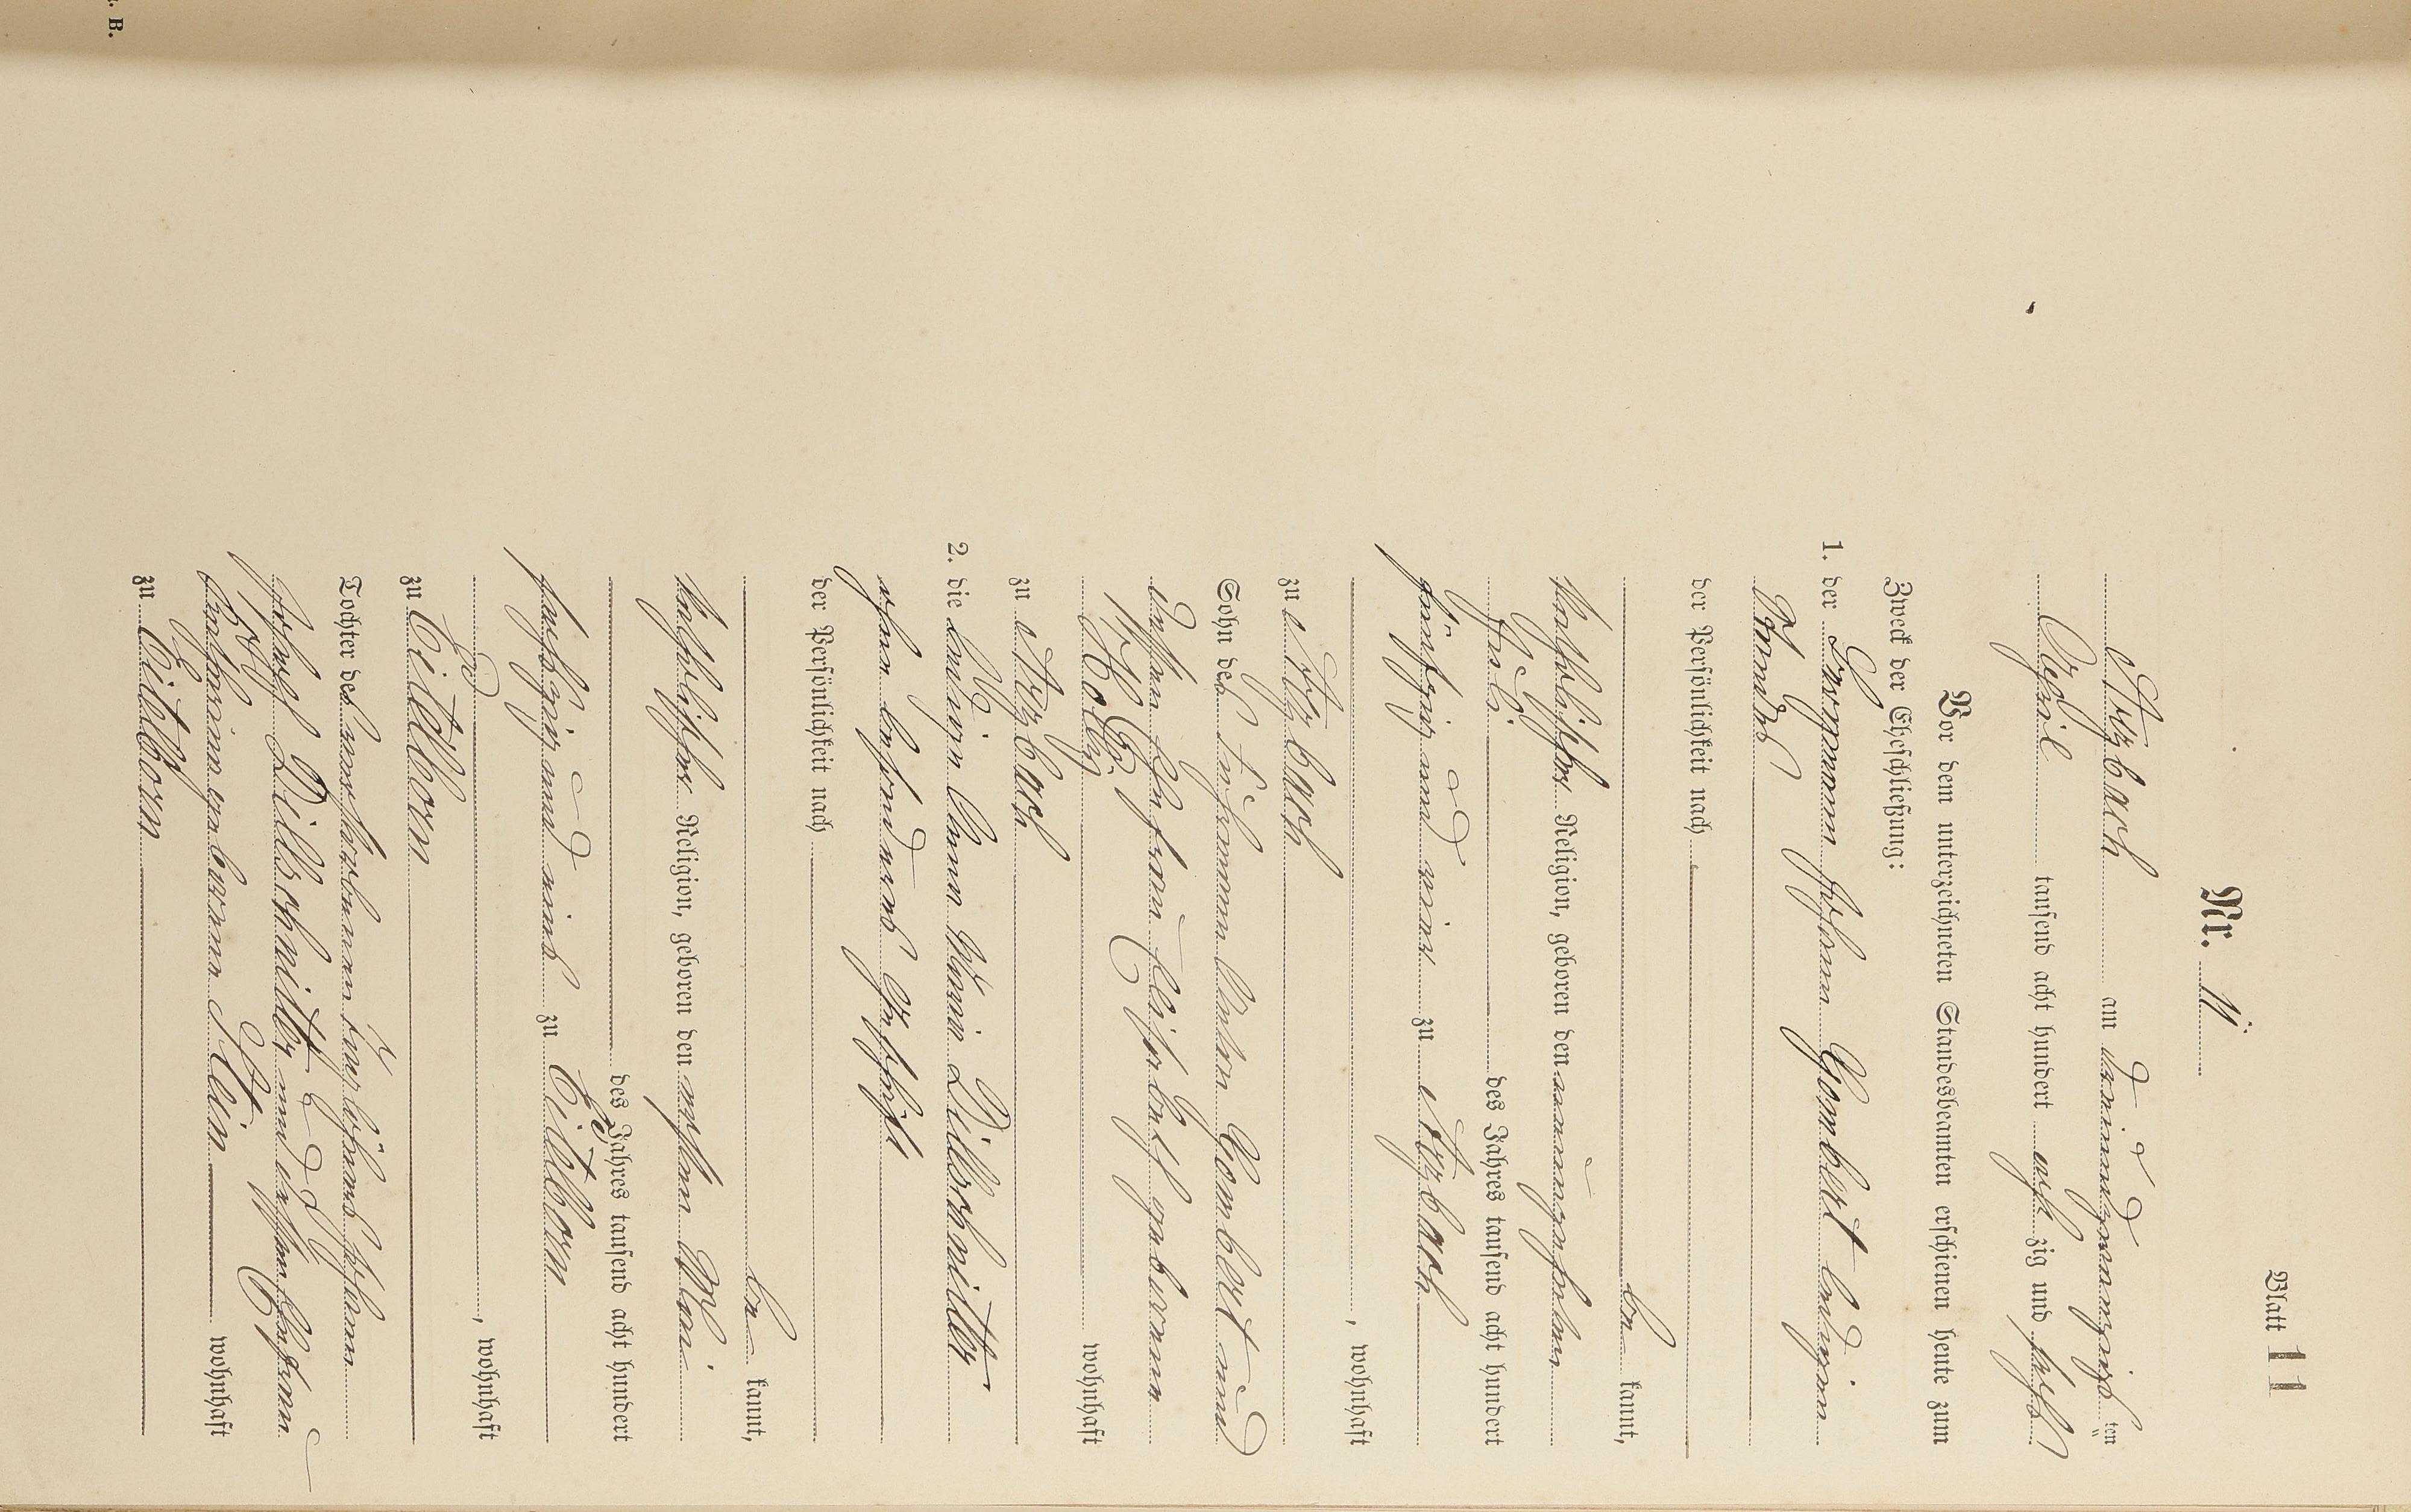 Blatt 11
Nr. 11.
Arzbach am dreiundzwanzigsten
April tausend acht hundert achtzig und sechs
Vor dem unterzeichneten Standesbeamten erschienen heute zum
Zweck der Eheschließung:
1. der Bergmann Johann Gombert ledigen
Standes
der Persönlichkeit nach
be kannt,
katholischer Religion, geboren den neunzehnten
Juli des Jahres tausend acht hundert
fünfzig und vier zu Arzbach
, wohnhaft
zu Arzbach
Sohn des Anton Gombert und
dessen Ehefrau Elisabeth geborene
Holly wohnhaft
zu Arzbach
2. die ledigen Anna Maria Dillschnitter
ohne besonderes Geschäft
der Persönlichkeit nach
be kannt,
katholischer Religion, geboren den ersten Mai
des Jahres tausend acht hundert
sechszig und eins zu Eitelborn
, wohnhaft
zu Eitelborn
Tochter des verstorbenen Taglöhners Johann
Joseph Dillschnitter und dessen Ehefrau
Katharina geborene Klein wohnhaft
zu Eitelborn
. B.